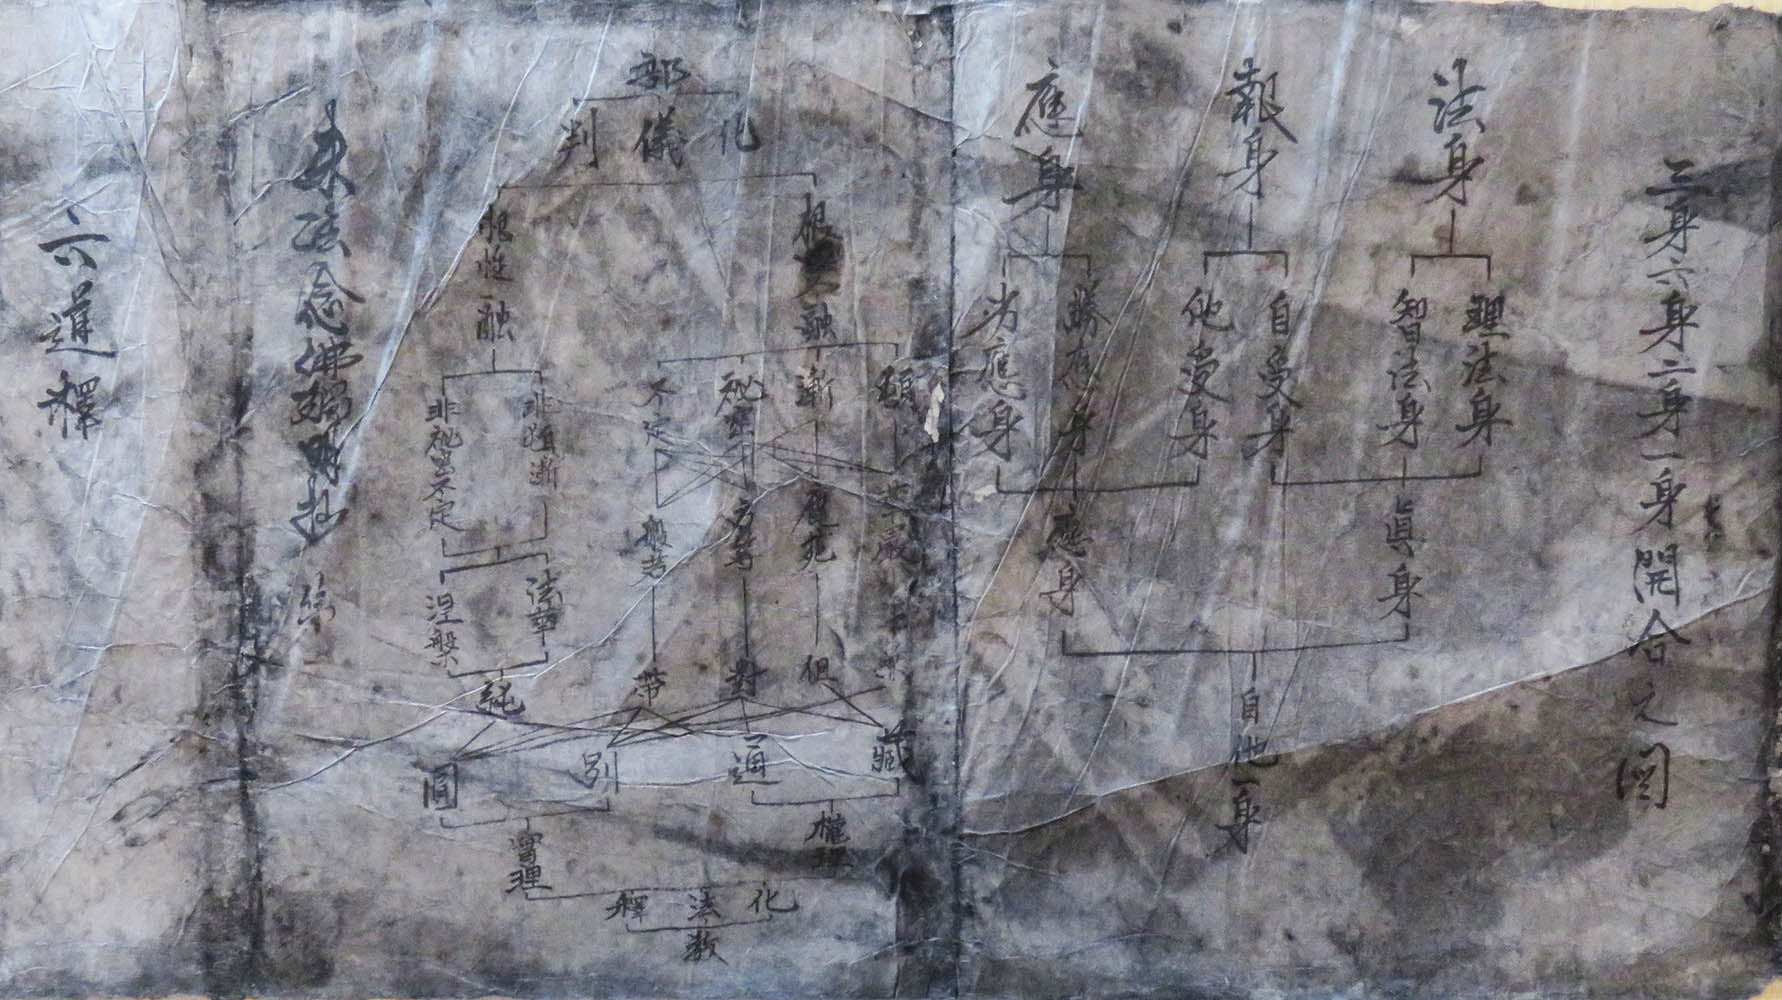 三身六身二身一身開合之図
法身
報身
應身
理法身
智法身
自受身
他受身
勝應身
劣應身
眞身
應身
自他一身
部
化儀判
根
融
根性融
頓
漸
祕密
不定
非頓漸
非祕密不定
華嚴
鹿苑
方等
般若
法華
涅槃
但
對
帶
純
藏
通
別
圓
權理
實理
化法釋
教
末法念佛
六道釋